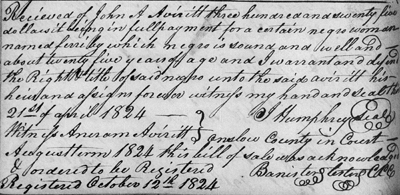 Recieved of John A Averitt three hundred and twenty five
dollars it being in full payment for a certain negro woman
named ferreby which negro is sound and well and
about twenty five years of age and I warrant and defend
the Right & title of said negro unto the said averitt his
heirs and assigns forever witness my hand and seal this
21st of april 1824 — J Humphrey Seal
Witness Averam Averitt } onslow County in Court
August term 1824 this bill of sale was acknowledged
& ordered to be Registered
Registered October 12th 1824